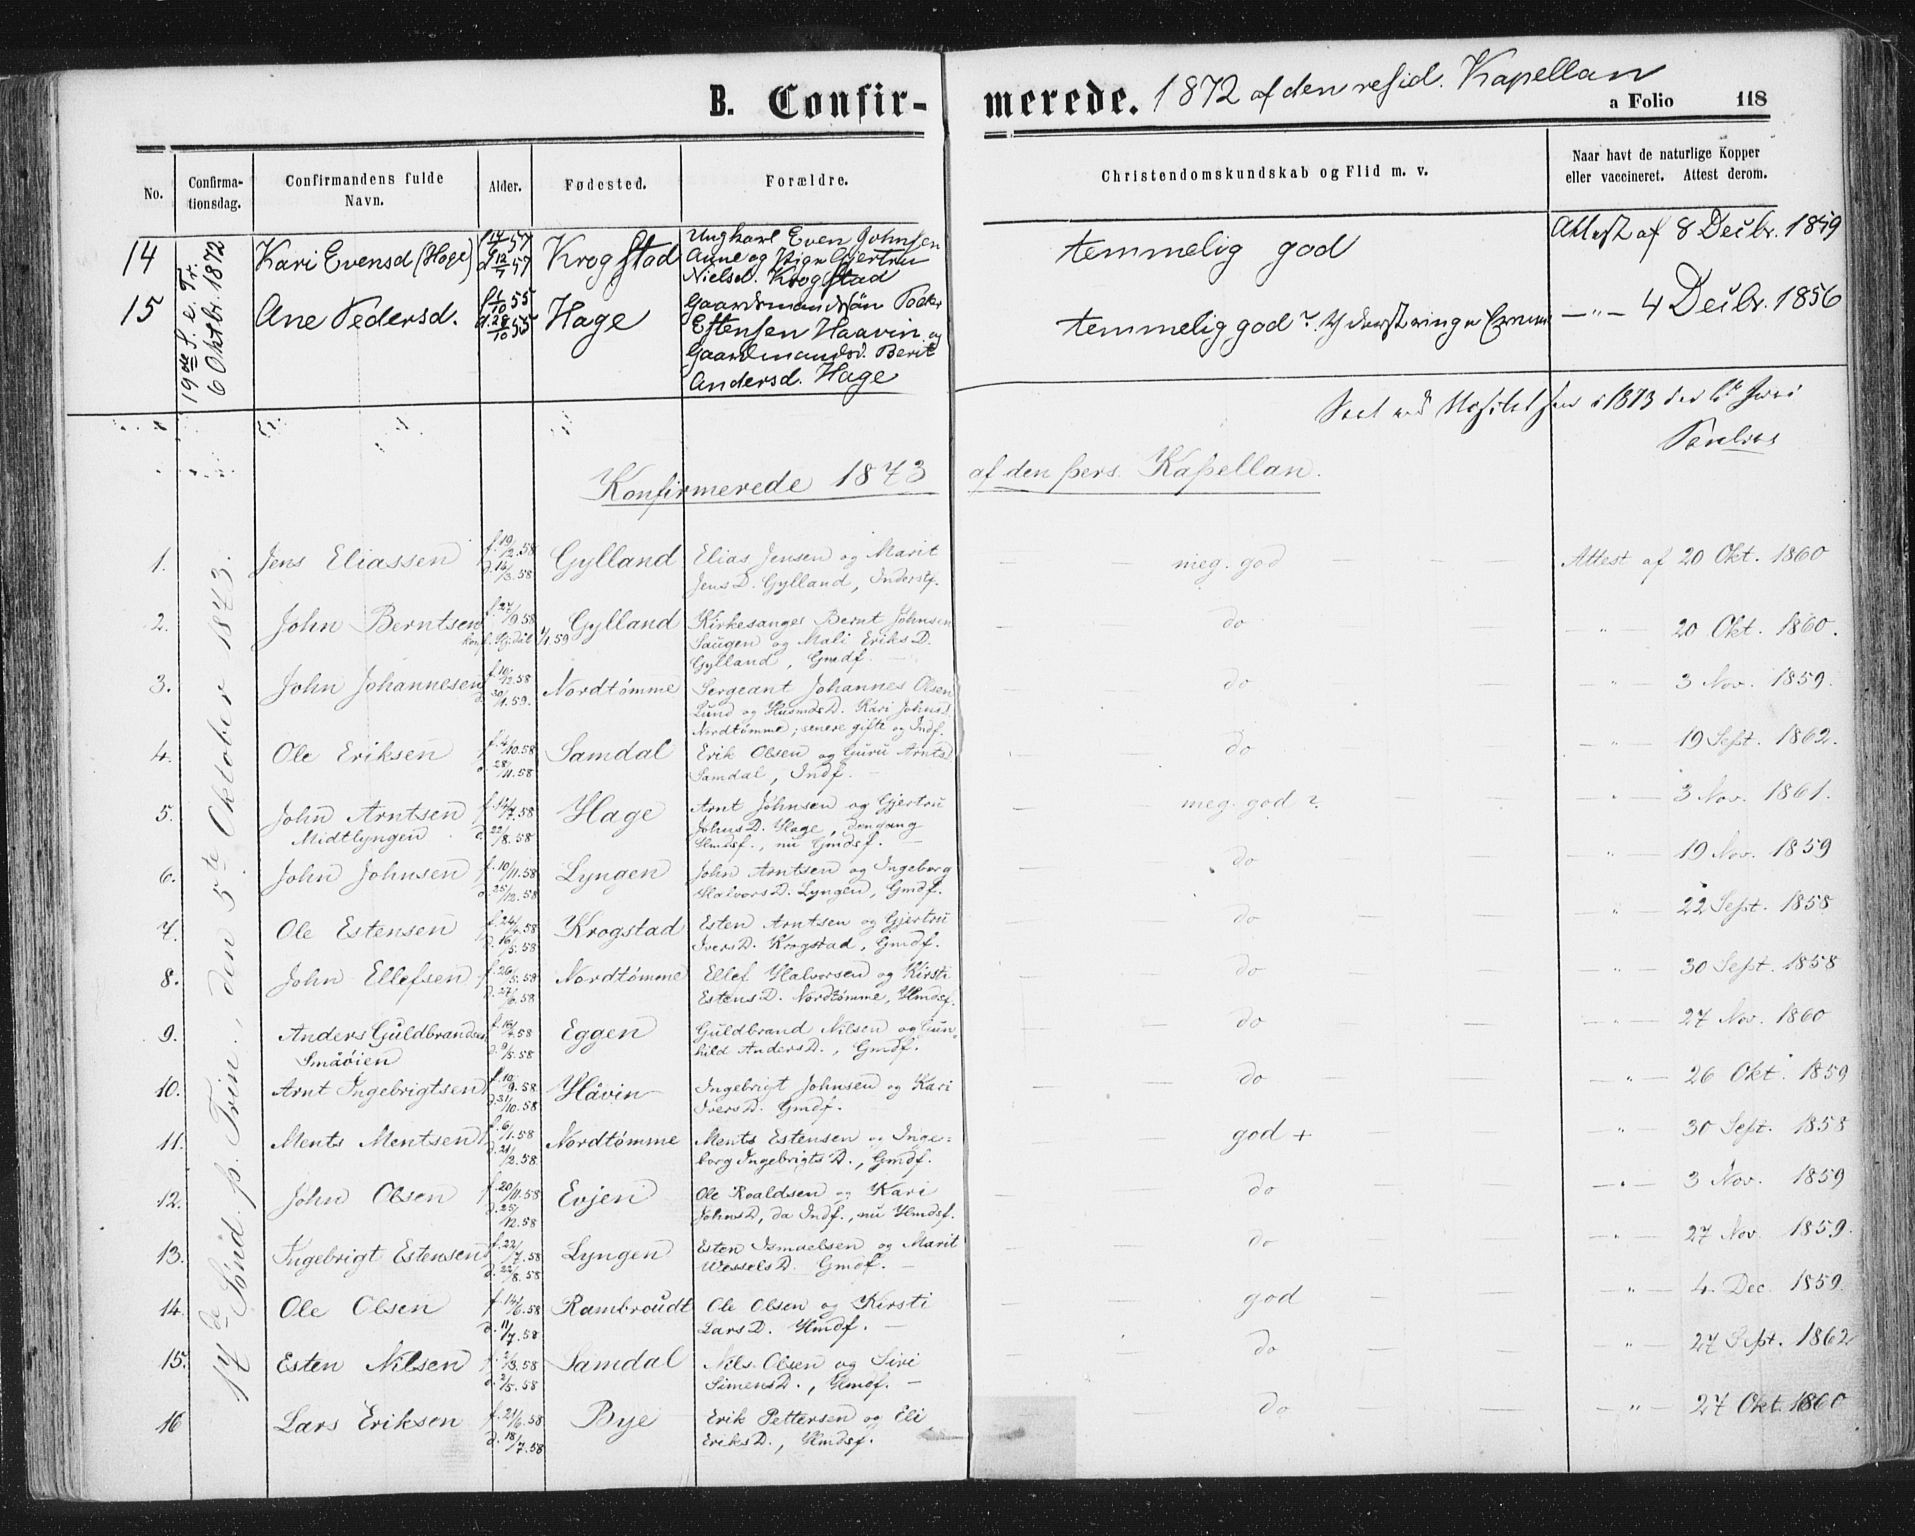 B. Confirmerede. 1872 af den resid. Kapellan
a Folio 118
No. Confirmationsdag. Confirmandens fulde Navn. Alder. Fødested. Forældre. Christendomskundskab og Flid m. v. Naar havt de naturlige Kopper eller vaccineret. Attest derom.
19de S. e. Tr. 6 Oktbr. 1872
14 Kari Evensd (Hage) Krogstad Ungkarl Even Johnsen temmelig god Attest af 8 Decbr. 1859
Anne og Pige Gjertru
Nielsd. Krogstad
15 Ane Pedersd. Hage Gaardmandssøn Peder temmelig god? 4 Decbr. 1856
Estensen Haavin og
Gaardmandsd. Berit
Andersd. Hage
Konfirmerede 1873 af den pers. Kapellan.
17de Sønd. p. Trin., den 5te Oktober 1873.
1. Jens Eliassen f. 19/2.58 Gylland Elias Jensen og Marit — meg. god — Attest af 20 Okt. 1860
d. 14/3.58 Jens D. Gylland, Inderstf.
2. John Berntsen f. 27/9 58 Gylland Kirkesanger Bernt Johnsen do 20 Okt. 1860.
1/1 59 Saugen og Mali Eriks D.
Gylland, Gmdf.
3. John Johannesen f. 10/12.58 Nordtømme Sergeant Johannes Olsen do 3 Nov. 1859.
d. 30/1.59. Lund og Husmds D. Kari Johns D.
Nordtømme; senere gifte og Indf.
4. Ole Eriksen f. 4/10.58 Samdal Erik Olsen og Guru Arnts D. do 19 Sept. 1862.
d. 28/11.58 Samdal, Indf. —
5. John Arntsen f. 14/7.58 Hage Arnt Johnsen og Gjertru meg. god ? 3 Nov. 1861.
Midtlyngen d. 22/8.58 Johns D. Hage, dengang
Hmdsf., nu Gmdsf.
6. John Johnsen f. 10/11.58 Lyngen John Arntsen og Ingeborg do 19 Nov. 1859
d. 25/12.58 Halvors D. Lyngen, Gmdf.
7. Ole Estensen f. 24/4.58 Krogstad Esten Arntsen og Gjertru do 22 Sept. 1858
d. 16/5.58 Ivers D. Krogstad, Gmdf.
8. John Ellefsen f. 26/5.58 Nordtømme Ellef Halvorsen og Kirsti do 30 Sept. 1858
d. 27/6.58 Estens D. Nordtømme, Hmdsf.
9. Anders Guldbrandsen f. 16/4.58 Eggen Guldbrand Nilsen og Gun- do 27 Nov. 1860
Småøien d. 9/5.58 hild Anders D., Gmdf.
10. Arnt Ingebrigtsen f. 10/9.58 Håvin Ingebrigt Johnsen og Kari do 26 Okt. 1859
d. 31/10.58 Ivers D. Gmdf.
11. Ments Mentsen f. 6/1.58 Nordtømme Ments Estensen og Inge- god + 30 Sept. 1858
d. 21/2.58 borg Ingebrigts D., Gmdf.
12. John Olsen f. 20/11.58 Evjen Ole Roaldsen og Kari do 3 Nov. 1859
d. 25/12.58 Johns D, da Indf., nu Hmdsf.
13. Ingebrigt Estensen f. 22/7.58 Lyngen Esten Ismaelsen og Marit do 27 Nov. 1859.
d. 22/8.58 Wessels D. Gmdf. —
14. Ole Olsen f. 14/6.58 Rambraudt Ole Olsen og Kirsti god 4. Dec. 1859.
d. 11/7.58 Lars D. Hmdf. —
15. Esten Nilsen f. 2/3.58 Samdal Nils Olsen og Siri do 27 Sept. 1862
d. 2/5.58 Simens D., Hmdf. —
16 Lars Eriksen f. 21/6.58 Bye Erik Pettersen og Eli do 27 Okt. 1860
d. 18/7.58 Eriks D., Hmdsf.